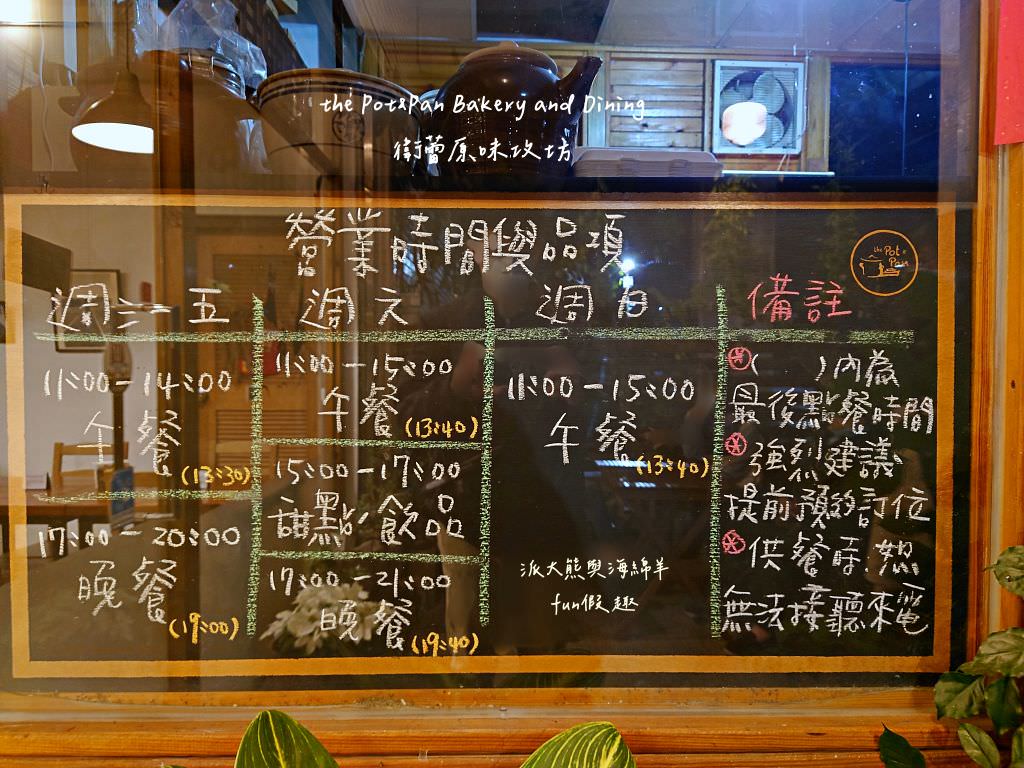 the Pot&Pan Bakery and Dining
衖蕾原味攻坊
營業時間與品項
the Pot &
Pan
週二-五
11:00-14:00
午餐
(13:30)
17:00-20:00
晚餐
(19:00)
週六
11:00-15:00
午餐
(13:40)
15:00-17:00
甜點/飲品
17:00-21:00
晚餐
(19:40)
週日
11:00-15:00
午餐
(13:40)
派大熊與海綿羊
fun假趣
備註
( )內為
最後點餐時間
強烈建議
提前預約訂位
供餐時.恕
無法接聽來電